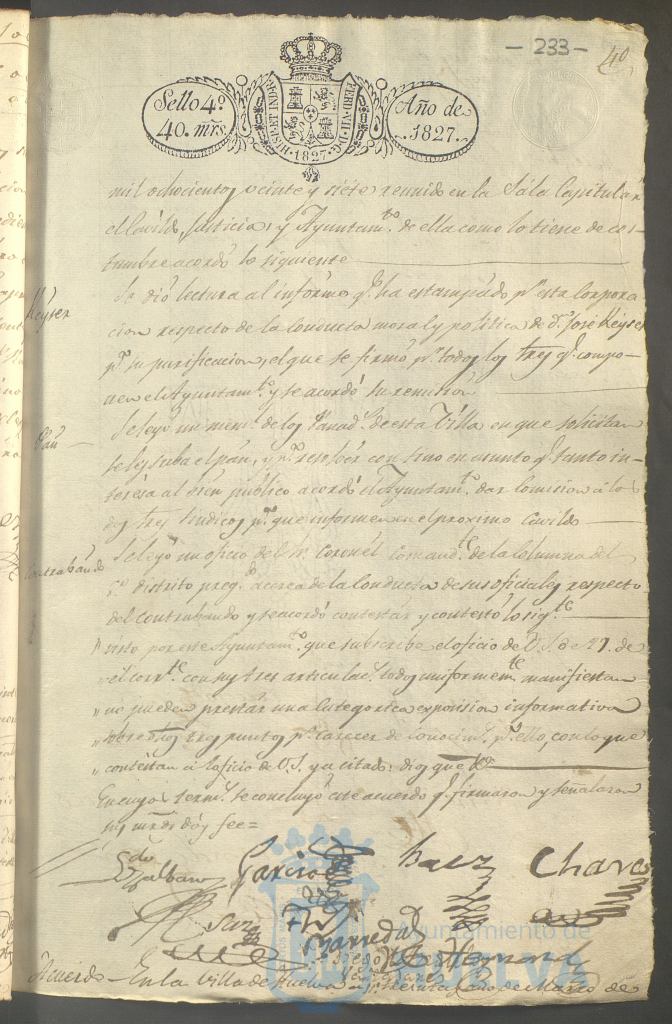 - 233 -
40
Sello 4º
40. mrs.
HISP. ET IND. R.
FERD. VII. D. G.
1827
Año de
1827.
mil ochocientos veinte y siete reunido en la Sala Capitular
el Cavildo, Justicia, y Ayuntamto. de ella como lo tiene de cos-
tumbre acordó lo siguiente
Keyser
Se dió lectura al informe q. ha estampado pr. esta Corpora
cion respecto de la conducta moral y politica de Dn. José Keyser
pa. su purificacion, el que se firmó pr. todos los tres q. compo-
nen el Ayuntamto. y se acordó su remision
Pan
Se leyó un meml. de los Panads. de esta Villa en que solicitan
se les suba el pan, y pa. resolver con tino en asunto q. tanto in-
teresa al bien publico acordó el Ayuntamto. dar comision á los
dos tres Sindicos pa. que informen en el proximo Cavildo
Contrabando
Se leyó un oficio del Sr. Coronel Comandte. de la Columna del
5º distrito pregdo. acerca de la Conducta de sus oficiales respecto
del contrabando y se acordó contestar y contestó lo sigte.
" visto por este Ayuntamto. que subscribe el oficio de V.S. de 27. de
" el corrte. con sus tres articulos todos uniformemte. manifiestan
" no pueden prestar una Categorica exposicion informativa
" sobre dhos tres puntos pr. carecer de conocimto. pa. ello, con lo que
" contestan á el oficio de V.S. ya citado: dios que
En cuyos termos. se concluyó este acuerdo q. firmaron y señalaron
sus mrds. doy fee =
Garcia
Baez
Chaves
Saez
Barreda
Acuerdo
En la Villa de Huelva en treinta y uno de Marzo de
Ayuntamiento de
HUELVA